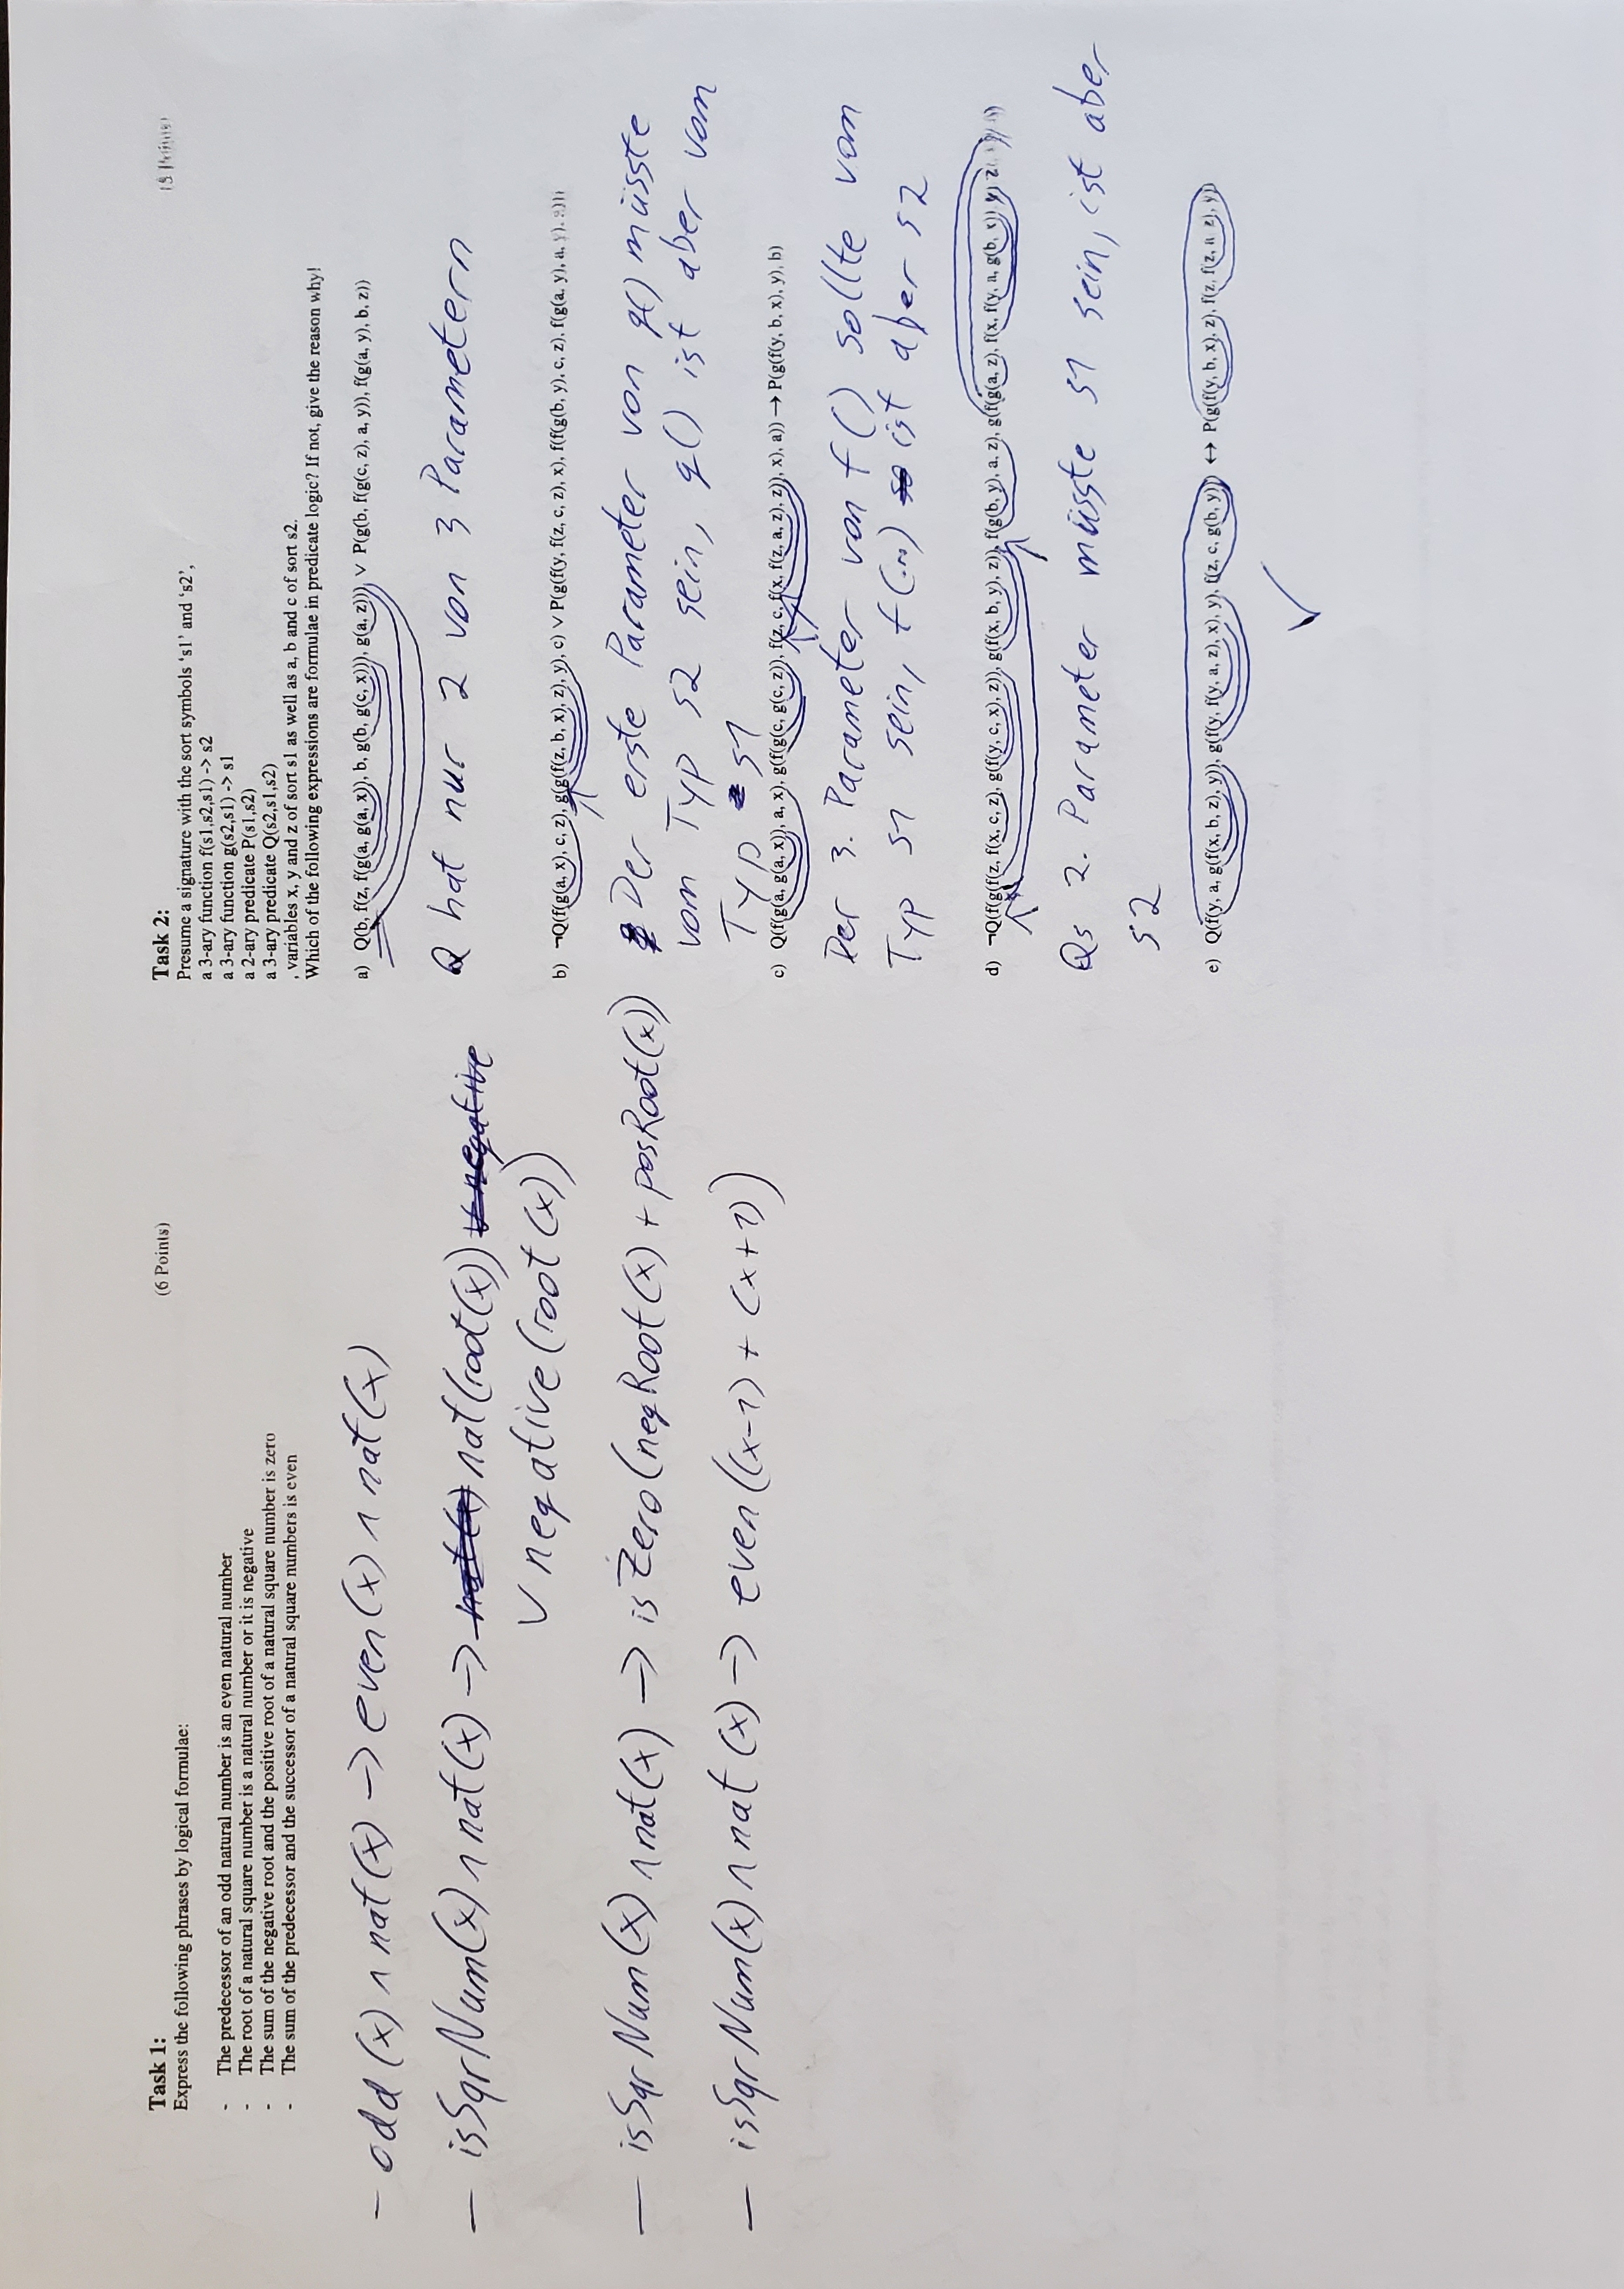 Task 1:
(6 Points)
Express the following phrases by logical formulae:
- The predecessor of an odd natural number is an even natural number
- The root of a natural square number is a natural number or it is negative
- The sum of the negative root and the positive root of a natural square number is zero
- The sum of the predecessor and the successor of a natural square numbers is even
- odd(x) ∧ nat(x) -> even(x) ∧ nat(x)
- isSqrNum(x) ∧ nat(x) -> nat(root(x))
∨ negative(root(x))
- isSqrNum(x) ∧ nat(x) -> isZero(negRoot(x) + posRoot(x))
- isSqrNum(x) ∧ nat(x) -> even((x-1) + (x+1))
Task 2:
Presume a signature with the sort symbols 's1' and 's2',
a 3-ary function f(s1,s2,s1) -> s2
a 3-ary function g(s2,s1) -> s1
a 2-ary predicate P(s1,s2)
a 3-ary predicate Q(s2,s1,s2)
, variables x, y and z of sort s1 as well as a, b and c of sort s2.
Which of the following expressions are formulae in predicate logic? If not, give the reason why!
a) Q(b, f(z, f(g(a, g(a, x)), b, g(b, g(c, x))), g(a, z))) ∨ P(g(b, f(g(c, z), a, y)), f(g(a, y), b, z))
Q hat nur 2 von 3 Parametern
b) ¬Q(f(g(a, x), c, z), g(g(f(z, b, x), z), y), c) ∨ P(g(f(y, f(z, c, z), x), f(f(g(b, y), c, z), f(g(a, y), a, y), z)))
Der erste Parameter von g() müsste
vom Typ s2 sein, g() ist aber vom
Typ s1
c) Q(f(g(a, g(a, x)), a, x), g(f(g(c, g(c, z)), f(z, c, f(x, f(z, a, z), z)), x), a)) → P(g(f(y, b, x), y), b)
Der 3. Parameter von f() sollte vom
Typ s1 sein, f(..) ist aber s2
d) ¬Q(f(g(f(z, f(x, c, z), g(f(y, c, x), z)), g(f(x, b, y), z)), f(g(b, y), a, z), g(f(g(a, z), f(x, f(y, a, g(b, x)) y) z
Qs 2. Parameter müsste s1 sein, ist aber
s2
e) Q(f(y, a, g(f(x, b, z), y)), g(f(y, f(y, a, z), x), y), f(z, c, g(b, y))) ↔ P(g(f(y, b, x), z), f(z, f(z, a, z), y))
✓